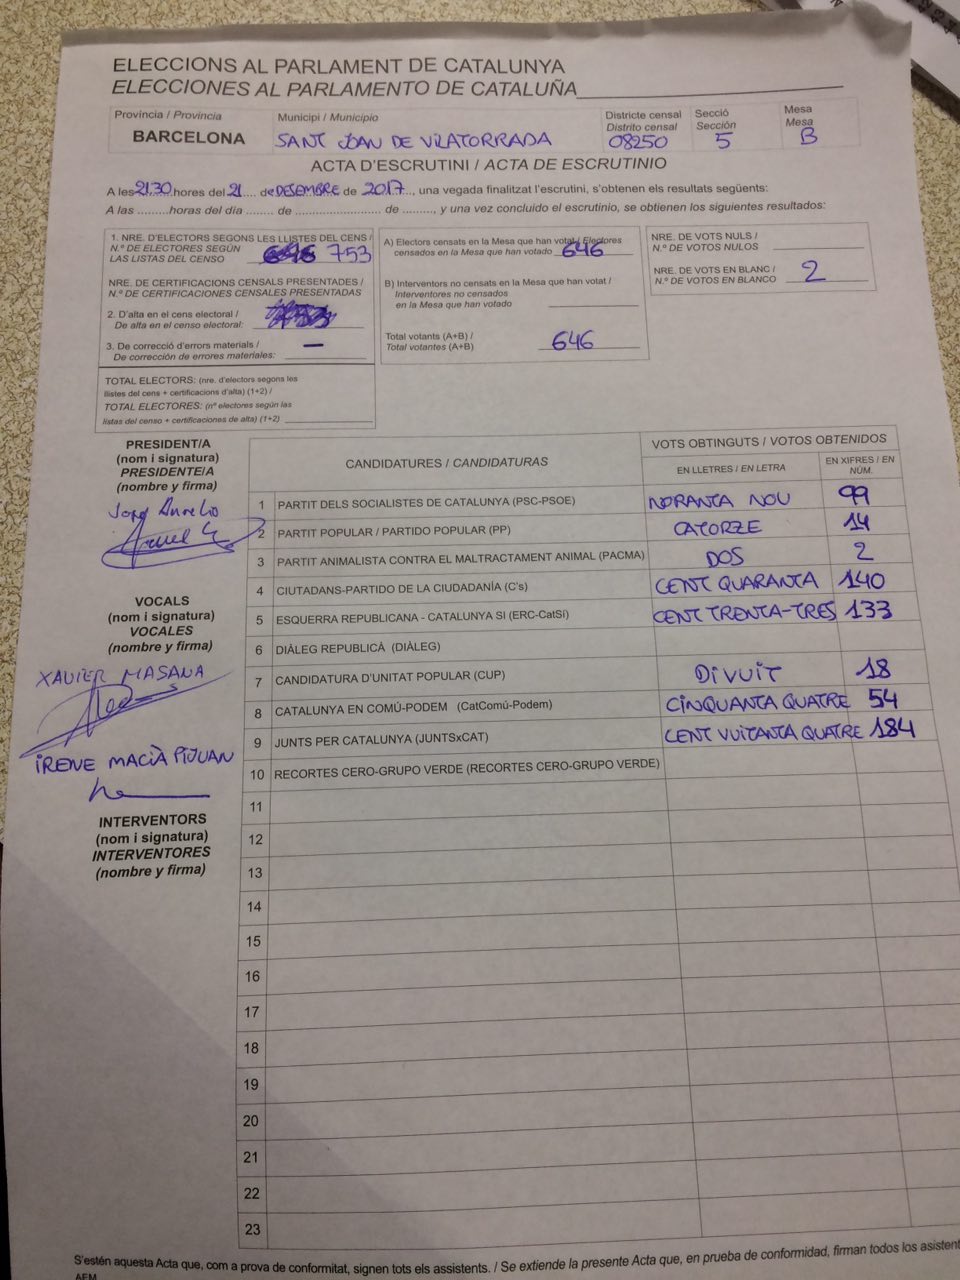 ELECCIONS AL PARLAMENT DE CATALUNYA
ELECCIONES AL PARLAMENTO DE CATALUÑA
Província / Provincia
BARCELONA
Municipi / Municipio
SANT JOAN DE VILATORRADA
Districte censal
Distrito censal
08250
Secció
Sección
5
Mesa
Mesa
B
ACTA D'ESCRUTINI / ACTA DE ESCRUTINIO
A les 21:30 hores del 21 de DESEMBRE de 2017, una vegada finalitzat l'escrutini, s'obtenen els resultats següents:
A las .........horas del día ....... de ...................... de ........, y una vez concluido el escrutinio, se obtienen los siguientes resultados:
1. NRE. D'ELECTORS SEGONS LES LLISTES DEL CENS /
N.º DE ELECTORES SEGÚN
LAS LISTAS DEL CENSO 753
NRE. DE CERTIFICACIONS CENSALS PRESENTADES /
N.º DE CERTIFICACIONES CENSALES PRESENTADAS
2. D'alta en el cens electoral /
De alta en el censo electoral:
3. De correcció d'errors materials / —
De corrección de errores materiales:
TOTAL ELECTORS: (nre. d'electors segons les
llistes del cens + certificacions d'alta) (1+2) /
TOTAL ELECTORES: (nº electores según las
listas del censo + certificaciones de alta) (1+2)
A) Electors censats en la Mesa que han votat / Electores
censados en la Mesa que han votado 646
B) Interventors no censats en la Mesa que han votat /
Interventores no censados
en la Mesa que han votado
Total votants (A+B) /
Total votantes (A+B) 646
NRE. DE VOTS NULS /
N.º DE VOTOS NULOS
NRE. DE VOTS EN BLANC /
N.º DE VOTOS EN BLANCO 2
PRESIDENT/A
(nom i signatura)
PRESIDENTE/A
(nombre y firma)
Aurelio
VOCALS
(nom i signatura)
VOCALES
(nombre y firma)
XAVIER MASANA
IRENE MACIÀ PIJUAN
INTERVENTORS
(nom i signatura)
INTERVENTORES
(nombre y firma)
CANDIDATURES / CANDIDATURAS
VOTS OBTINGUTS / VOTOS OBTENIDOS
EN LLETRES / EN LETRA
EN XIFRES / EN
NÚM.
1 PARTIT DELS SOCIALISTES DE CATALUNYA (PSC-PSOE) NORANTA NOU 99
2 PARTIT POPULAR / PARTIDO POPULAR (PP) CATORZE 14
3 PARTIT ANIMALISTA CONTRA EL MALTRACTAMENT ANIMAL (PACMA) DOS 2
4 CIUTADANS-PARTIDO DE LA CIUDADANÍA (C's) CENT QUARANTA 140
5 ESQUERRA REPUBLICANA - CATALUNYA SI (ERC-CatSí) CENT TRENTA-TRES 133
6 DIÀLEG REPUBLICÀ (DIÀLEG)
7 CANDIDATURA D'UNITAT POPULAR (CUP) DIVUIT 18
8 CATALUNYA EN COMÚ-PODEM (CatComú-Podem) CINQUANTA QUATRE 54
9 JUNTS PER CATALUNYA (JUNTSxCAT) CENT VUITANTA QUATRE 184
10 RECORTES CERO-GRUPO VERDE (RECORTES CERO-GRUPO VERDE)
11
12
13
14
15
16
17
18
19
20
21
22
23
S'estén aquesta Acta que, com a prova de conformitat, signen tots els assistents. / Se extiende la presente Acta que, en prueba de conformidad, firman todos los asistent